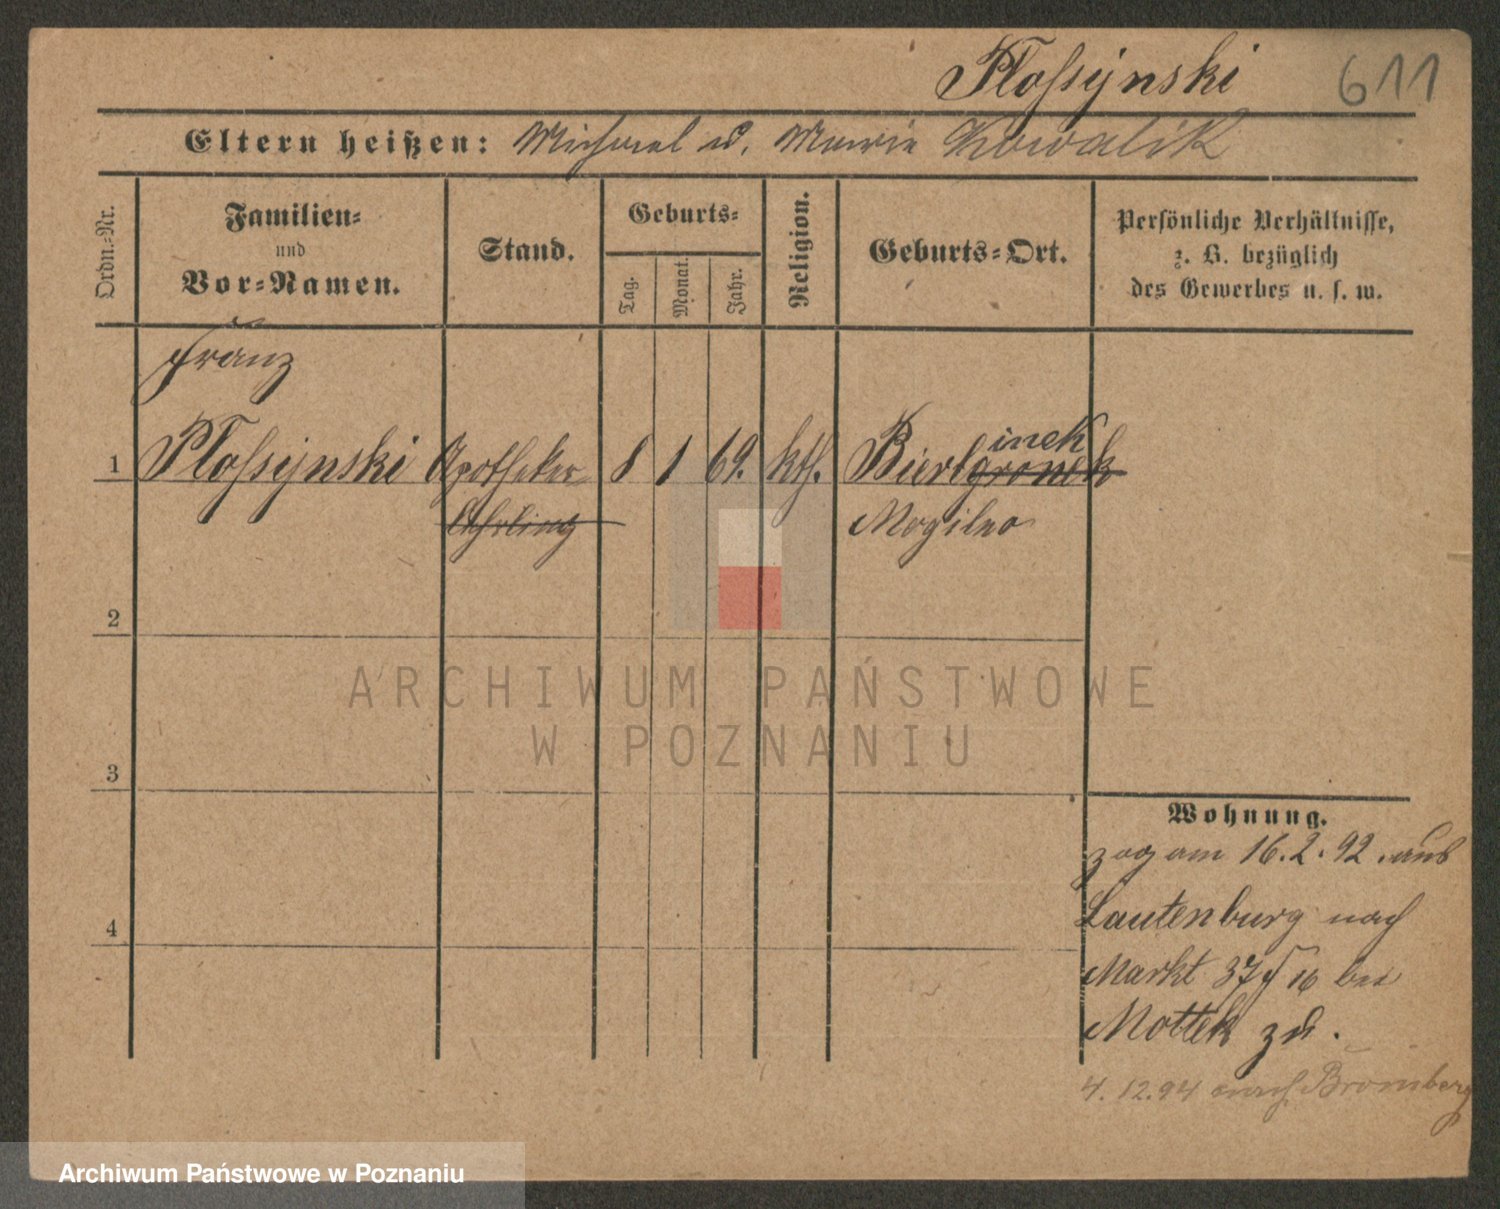 Plossynski 611
Eltern heißen: Michael u. Marie Kowalik
Ordn.-Nr.
Familien-
und
Vor-Namen.
Stand.
Geburts-
Tag.
Monat.
Jahr.
Religion.
Geburts-Ort.
Persönliche Verhältnisse,
z. B. bezüglich
des Gewerbes u. s. w.
Franz
1 Plossynski Apotheker 8 1 69. kth. Bierlgronek
inek
Lehrling
Mogilno
2
3
4
Wohnung.
zog am 16.2.92. aus
Lautenburg nach
Markt 37 / 16 bei
Mottek zu.
4.12.94 nach Bromberg
ARCHIWUM PAŃSTWOWE
W POZNANIU
Archiwum Państwowe w Poznaniu